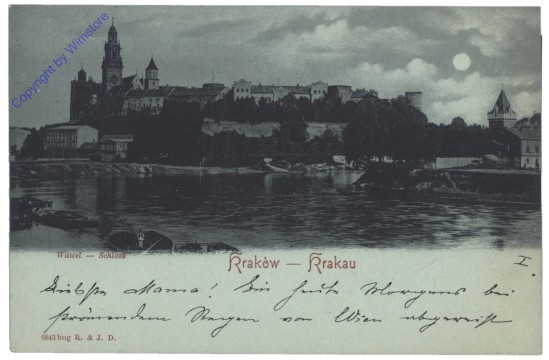 Copyright by Winstore
Wawel — Schloss
Kraków — Krakau
I.
Liebste Mama! Bin heute Morgens bei
strömendem Regen von Wien abgereist
6843 bug R. & J. D.